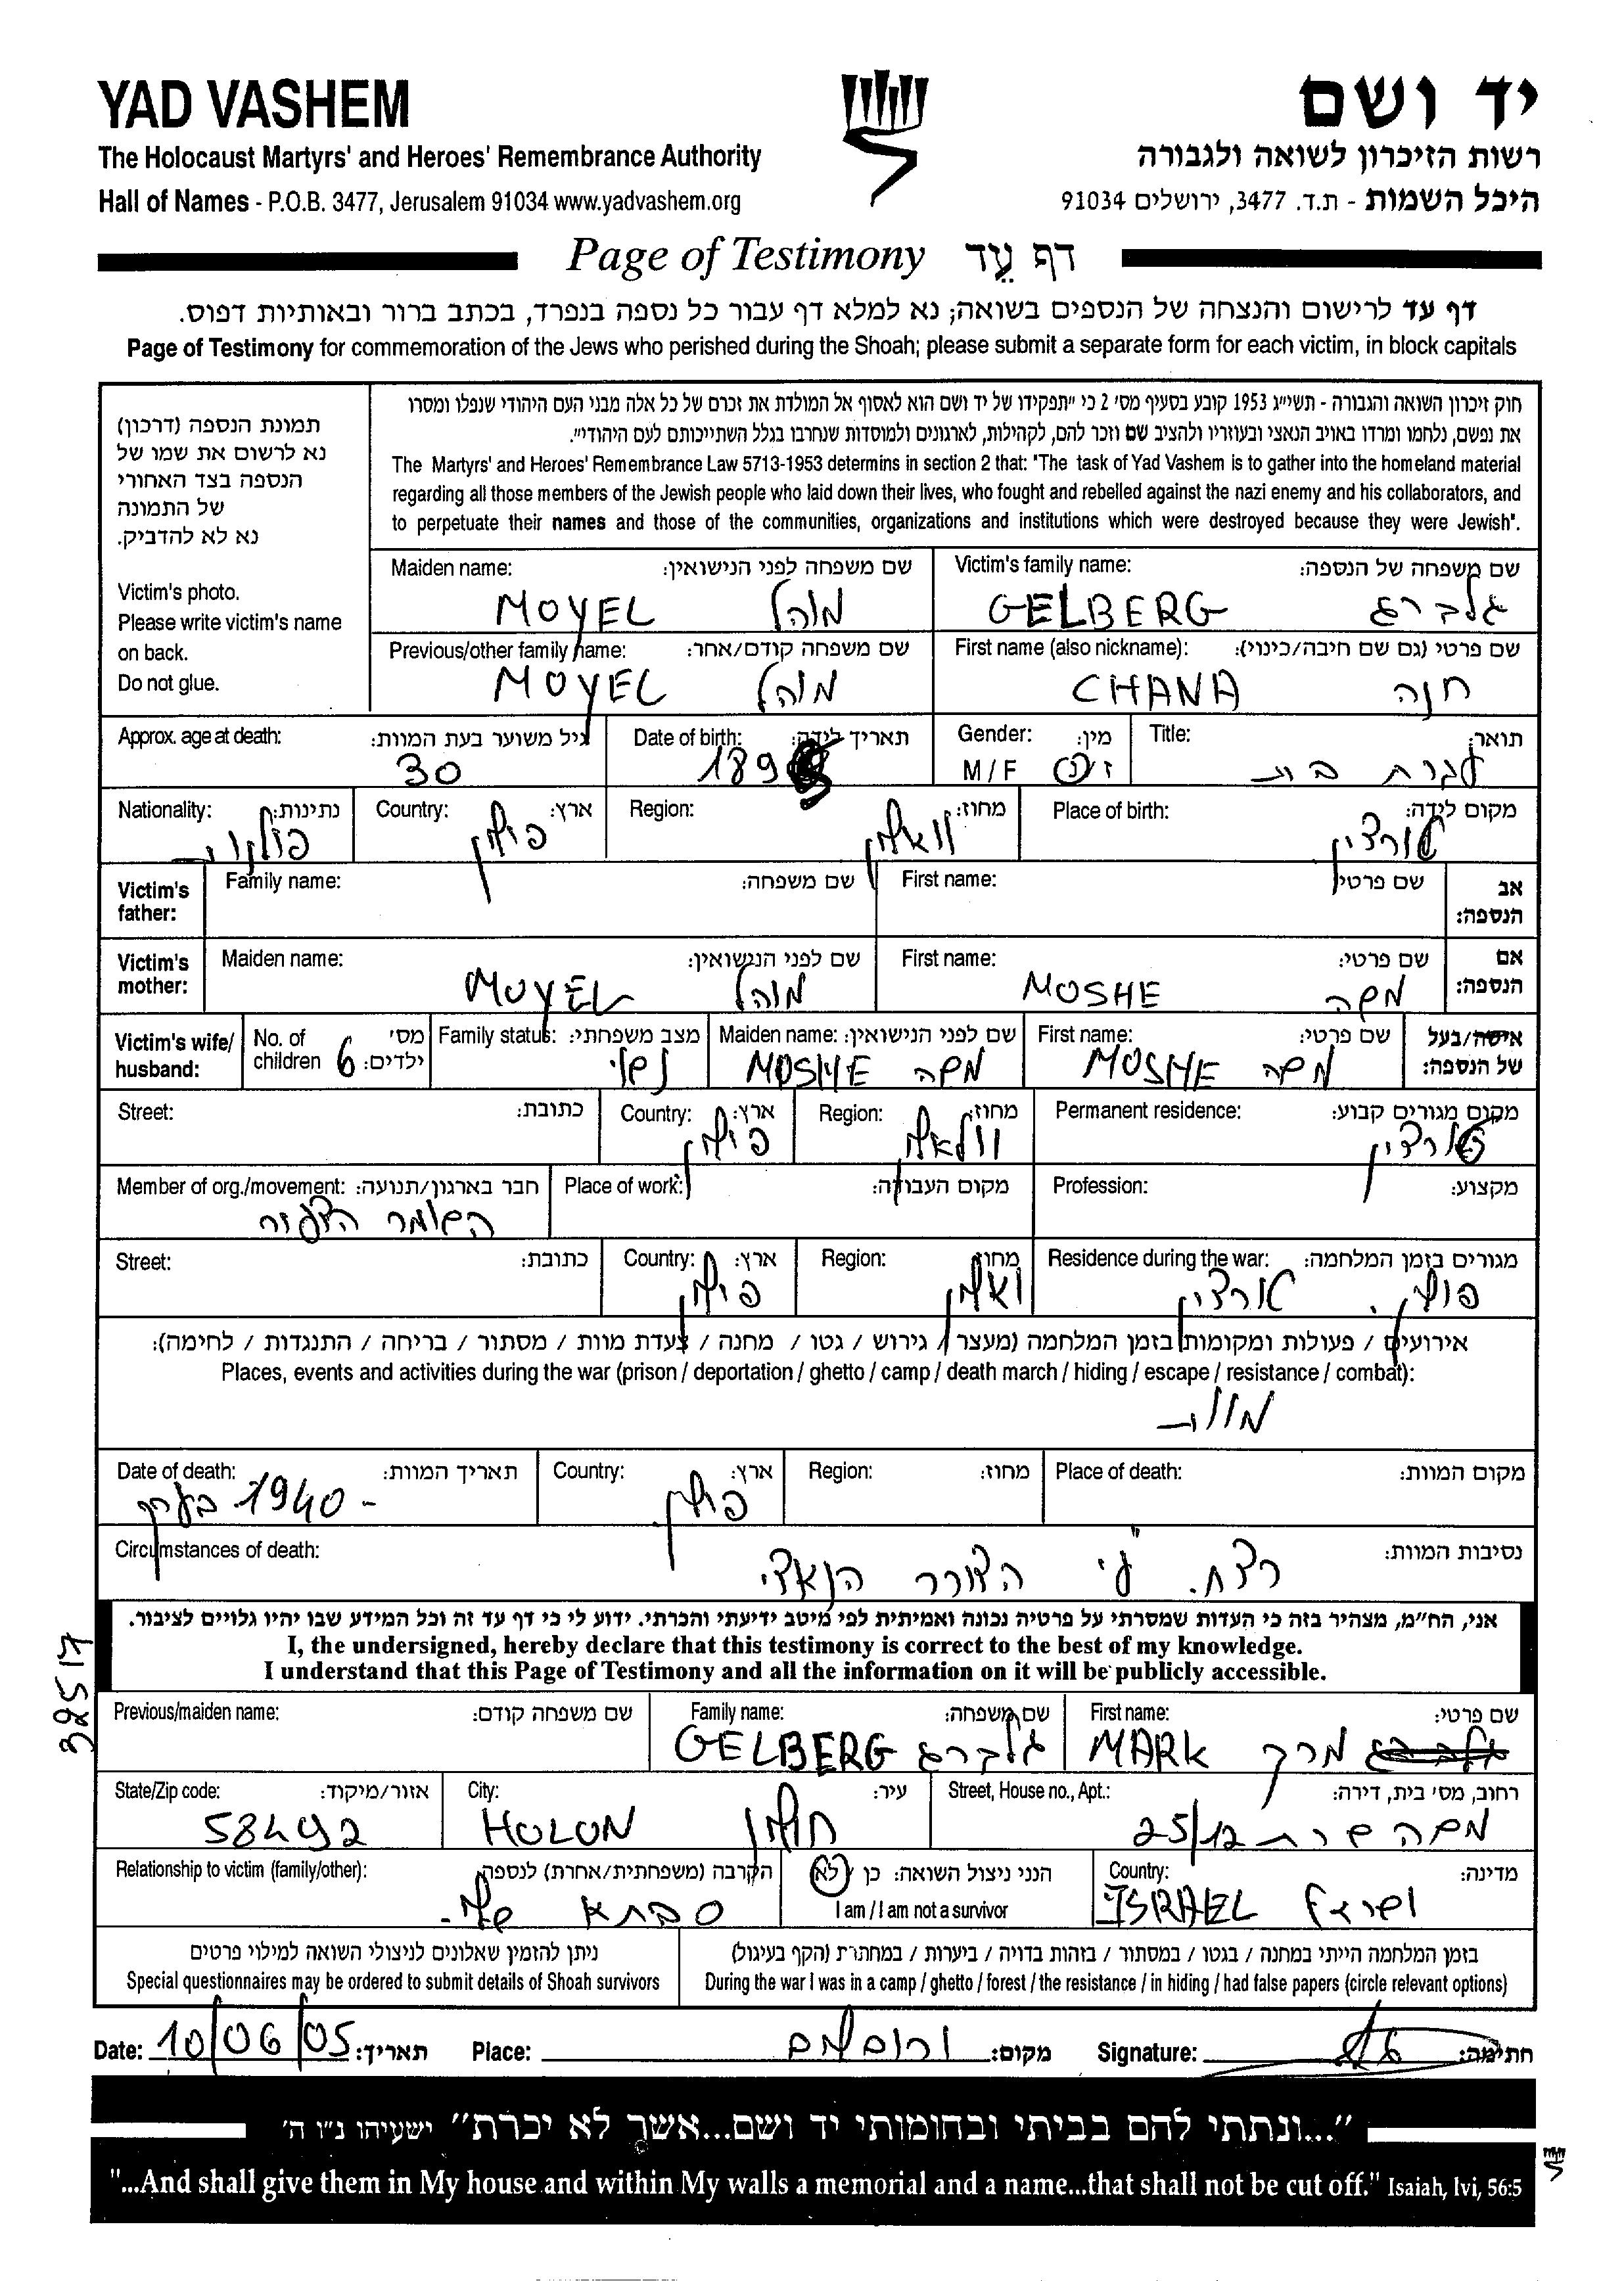 YAD VASHEM
יד ושם
The Holocaust Martyrs' and Heroes' Remembrance Authority
רשות הזיכרון לשואה ולגבורה
Hall of Names - P.O.B. 3477, Jerusalem 91034 www.yadvashem.org
היכל השמות - ת.ד. 3477, ירושלים 91034
Page of Testimony דף עֵד
דף עד לרישום והנצחה של הנספים בשואה; נא למלא דף עבור כל נספה בנפרד, בכתב ברור ובאותיות דפוס.
Page of Testimony for commemoration of the Jews who perished during the Shoah; please submit a separate form for each victim, in block capitals
תמונת הנספה (דרכון)
נא לרשום את שמו של
הנספה בצד האחורי
של התמונה
נא לא להדביק.
Victim's photo.
Please write victim's name
on back.
Do not glue.
חוק זיכרון השואה והגבורה - תשי"ג 1953 קובע בסעיף מס' 2 כי "תפקידו של יד ושם הוא לאסוף אל המולדת את זכרם של כל אלה מבני העם היהודי שנפלו ומסרו
את נפשם, נלחמו ומרדו באויב הנאצי ובעוזריו ולהציב שם וזכר להם, לקהילות, לארגונים ולמוסדות שנחרבו בגלל השתייכותם לעם היהודי".
The Martyrs' and Heroes' Remembrance Law 5713-1953 determins in section 2 that: "The task of Yad Vashem is to gather into the homeland material
regarding all those members of the Jewish people who laid down their lives, who fought and rebelled against the nazi enemy and his collaborators, and
to perpetuate their names and those of the communities, organizations and institutions which were destroyed because they were Jewish".
Maiden name: שם משפחה לפני הנישואין:
MOYEL מוהל
Victim's family name: שם משפחה של הנספה:
GELBERG גלברג
Previous/other family name: שם משפחה קודם/אחר:
MOYEL מוהל
First name (also nickname): שם פרטי (גם שם חיבה/כינוי):
CHANA חנה
Approx. age at death: גיל משוער בעת המוות:
30
Date of birth: תאריך לידה:
189
Gender: מין:
M / F ז/נ
Title: תואר:
Nationality: נתינות:
פולנית
Country: ארץ:
פולין
Region: מחוז:
ווהלין
Place of birth: מקום לידה:
Victim's father:
Family name: שם משפחה:
First name: שם פרטי:
אב הנספה:
Victim's mother:
Maiden name: שם לפני הנישואין:
MOYEL מוהל
First name: שם פרטי:
MOSHE משה
אם הנספה:
Victim's wife/ husband:
No. of children 6 מס' ילדים:
Family status: מצב משפחתי:
נשוי
Maiden name: שם לפני הנישואין:
MOSHE משה
First name: שם פרטי:
MOSHE משה
אישה/בעל של הנספה:
Street: כתובת:
Country: ארץ:
פולין
Region: מחוז:
Permanent residence: מקום מגורים קבוע:
Member of org./movement: חבר בארגון/תנועה:
השומר הצעיר
Place of work: מקום העבודה:
Profession: מקצוע:
Street: כתובת:
Country: ארץ:
פולין
Region: מחוז:
Residence during the war: מגורים בזמן המלחמה:
פולין.
אירועים / פעולות ומקומות בזמן המלחמה (מעצר / גירוש / גטו / מחנה / צעדת מוות / מסתור / בריחה / התנגדות / לחימה):
Places, events and activities during the war (prison / deportation / ghetto / camp / death march / hiding / escape / resistance / combat):
Date of death: תאריך המוות:
1940 בערך
Country: ארץ:
פולין
Region: מחוז:
Place of death: מקום המוות:
Circumstances of death: נסיבות המוות:
רצח. ע"י הצורר הנאצי
אני, הח"מ, מצהיר בזה כי העדות שמסרתי על פרטיה נכונה ואמיתית לפי מיטב ידיעתי והכרתי. ידוע לי כי דף עד זה וכל המידע שבו יהיו גלויים לציבור.
I, the undersigned, hereby declare that this testimony is correct to the best of my knowledge.
I understand that this Page of Testimony and all the information on it will be publicly accessible.
Previous/maiden name: שם משפחה קודם:
Family name: שם משפחה:
GELBERG גלברג
First name: שם פרטי:
MARK מרק
State/Zip code: אזור/מיקוד:
58492
City: עיר:
HOLON חולון
Street, House no., Apt.: רחוב, מס' בית, דירה:
משה שרת 25/12
Relationship to victim (family/other): הקרבה (משפחתית/אחרת) לנספה:
סבתא שלי.
הנני ניצול השואה: כן / לא
I am / I am not a survivor
Country: מדינה:
ISRAEL ישראל
ניתן להזמין שאלונים לניצולי השואה למילוי פרטים
Special questionnaires may be ordered to submit details of Shoah survivors
בזמן המלחמה הייתי במחנה / בגטו / במסתור / בזהות בדויה / ביערות / במחתרת (הקף בעיגול)
During the war I was in a camp / ghetto / forest / the resistance / in hiding / had false papers (circle relevant options)
Date: 10/06/05 תאריך:
Place: ירושלים מקום:
Signature: חתימה:
"...ונתתי להם בביתי ובחומותי יד ושם...אשר לא יכרת" ישעיהו נ"ו ה'
"...And shall give them in My house and within My walls a memorial and a name...that shall not be cut off." Isaiah, lvi, 56:5